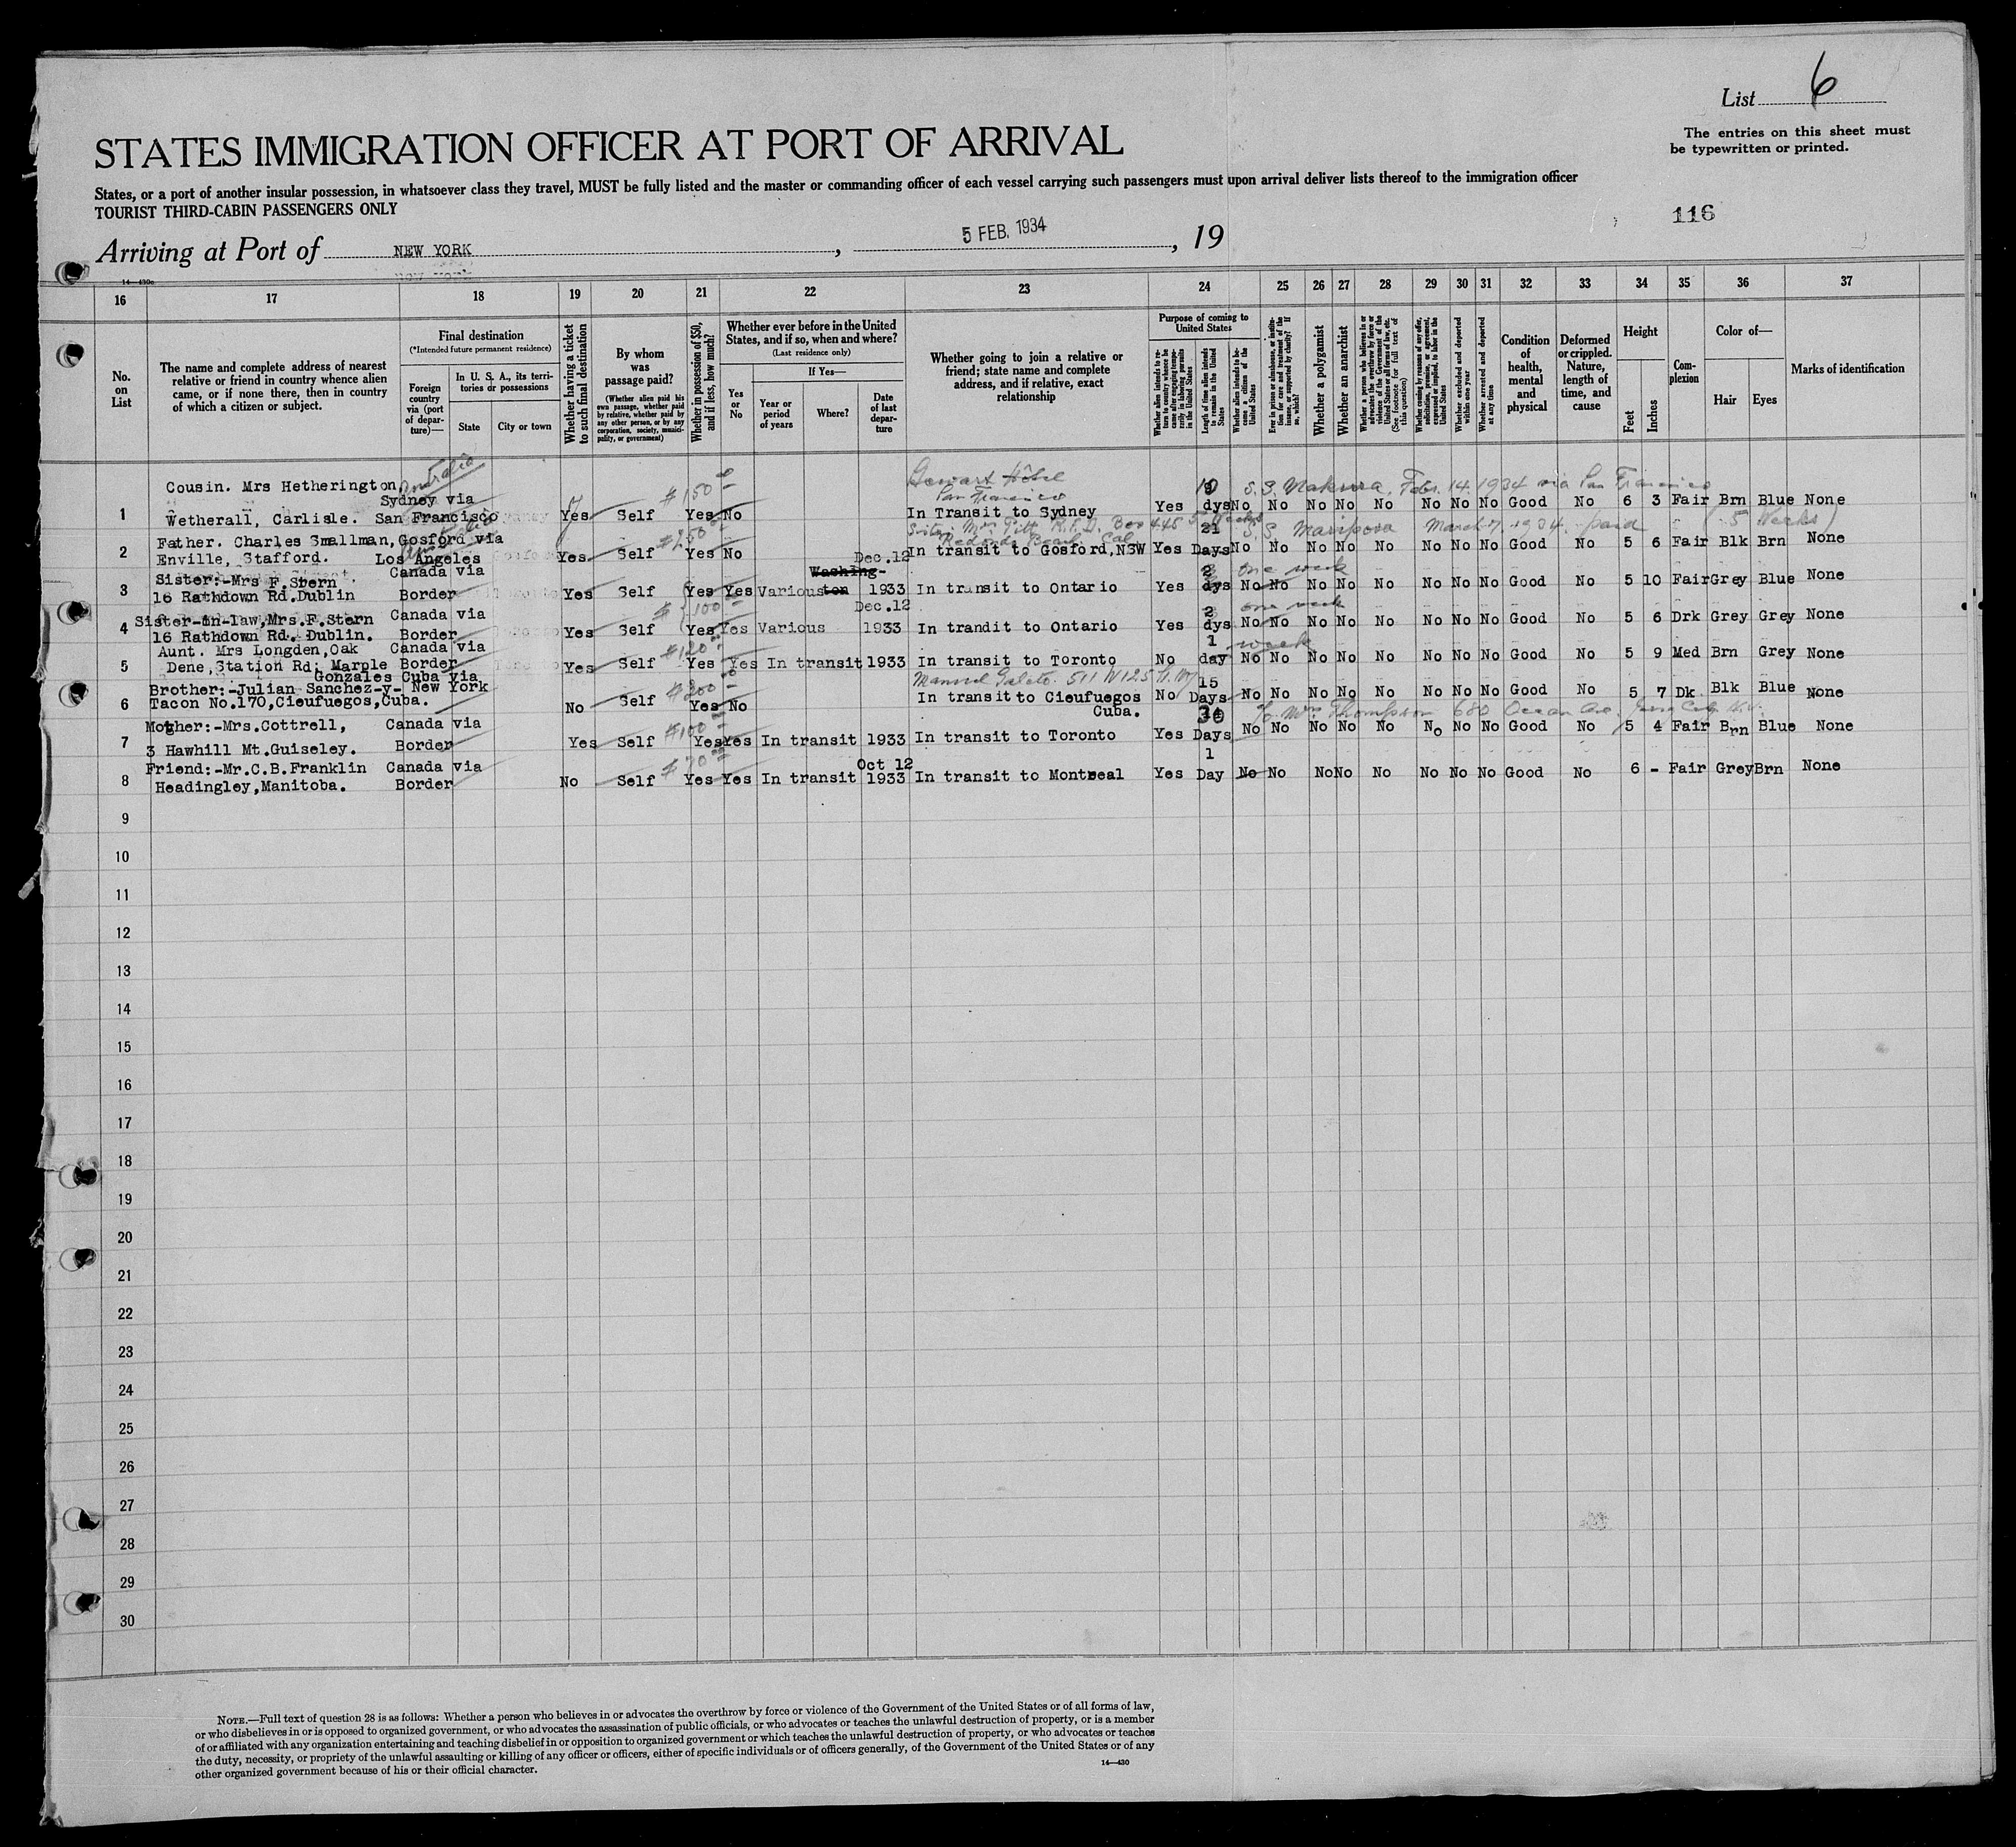 List 6
The entries on this sheet must
be typewritten or printed.
STATES IMMIGRATION OFFICER AT PORT OF ARRIVAL
States, or a port of another insular possession, in whatsoever class they travel, MUST be fully listed and the master or commanding officer of each vessel carrying such passengers must upon arrival deliver lists thereof to the immigration officer
TOURIST THIRD-CABIN PASSENGERS ONLY
116
Arriving at Port of NEW YORK, 5 FEB. 1934, 19
14—430c
16 17 18 19 20 21 22 23 24 25 26 27 28 29 30 31 32 33 34 35 36 37
No. on List
The name and complete address of nearest
relative or friend in country whence alien
came, or if none there, then in country
of which a citizen or subject.
Final destination
(*Intended future permanent residence)
Foreign country via (port of departure)—
In U. S. A., its territories or possessions
State
City or town
Whether having a ticket to such final destination
By whom was passage paid?
(Whether alien paid his own passage, whether paid by relative, whether paid by any other person, or by any corporation, society, municipality, or government)
Whether in possession of $50, and if less, how much?
Whether ever before in the United States, and if so, when and where?
(Last residence only)
Yes or No
If Yes—
Year or period of years
Where?
Date of last departure
Whether going to join a relative or
friend; state name and complete
address, and if relative, exact
relationship
Purpose of coming to United States
Whether alien intends to return to country whence he came after engaging temporarily in laboring pursuits in the United States
Length of time alien intends to remain in the United States
Whether alien intends to become a citizen of the United States
Ever in prison or almshouse, or institution for care and treatment of the insane, or supported by charity? If so, which?
Whether a polygamist
Whether an anarchist
Whether a person who believes in or advocates the overthrow by force or violence of the Government of the United States or all forms of law, etc. (See footnote for full text of this question)
Whether coming by reasons of any offer, solicitation, promise, or agreement, expressed or implied, to labor in the United States
Whether excluded and deported within one year
Whether arrested and deported at any time
Condition of health, mental and physical
Deformed or crippled. Nature, length of time, and cause
Height
Feet
Inches
Complexion
Color of—
Hair
Eyes
Marks of identification
Australia
Cousin. Mrs Hetherington, $150 Stewart Hotel 10 S.S. Makura Feb. 14. 1934 via San Francisco
Sydney via San Francisco
1 Wetherall, Carlisle. San Francisco Yes Self Yes No In Transit to Sydney Yes dys No No No No No No No No Good No 6 3 Fair Brn Blue None
Father. Charles Smallman, Gosford via $250 Sister Mrs R.F.D. Box 445 21 S.S. Mariposa March 7, 1934. paid (5 Weeks)
Redondo Beach Cal.
2 Enville, Stafford. Los Angeles Yes Self Yes No In transit to Gosford, NSW Yes Days No No No No No No No No Good No 5 6 Fair Blk Brn None
Sister:-Mrs F. Stern Canada via Washing- Dec.12 2 one week
3 16 Rathdown Rd.Dublin Border Yes Self Yes Yes Various ton 1933 In transit to Ontario Yes dys No No No No No No No No Good No 5 10 Fair Grey Blue None
Sister-in-law, Mrs.F.Stern Canada via $100 Dec.12 2 one week
4 16 Rathdown Rd. Dublin. Border Yes Self Yes Yes Various 1933 In trandit to Ontario Yes dys No No No No No No No No Good No 5 6 Drk Grey Grey None
Aunt. Mrs Longden, Oak Canada via $120 1 week
5 Dene, Station Rd; Marple Border Yes Self Yes Yes In transit 1933 In transit to Toronto No day No No No No No No No No Good No 5 9 Med Brn Grey None
Gonzales Cuba via
Brother:-Julian Sanchez-y- New York $200 Manuel 511 W 125 15
6 Tacon No.170, Cieufuegos, Cuba. No Self Yes No In transit to Cieufuegos Cuba. No Days No No No No No No No No Good No 5 7 Dk Blk Blue None
Mother:-Mrs.Cottrell, Canada via $100 30 c/o Thompson 680 Ocean Ave.
7 3 Hawhill Mt.Guiseley. Border Yes Self Yes Yes In transit 1933 In transit to Toronto Yes Days No No No No No No No No Good No 5 4 Fair Brn Blue None
Friend:-Mr.C.B.Franklin Canada via $70 Oct 12 1
8 Headingley, Manitoba. Border No Self Yes Yes In transit 1933 In transit to Montreal Yes Day No No No No No No No No Good No 6 - Fair Grey Brn None
9
10
11
12
13
14
15
16
17
18
19
20
21
22
23
24
25
26
27
28
29
30
NOTE.—Full text of question 28 is as follows: Whether a person who believes in or advocates the overthrow by force or violence of the Government of the United States or of all forms of law,
or who disbelieves in or is opposed to organized government, or who advocates the assassination of public officials, or who advocates or teaches the unlawful destruction of property, or is a member
of or affiliated with any organization entertaining and teaching disbelief in or opposition to organized government or which teaches the unlawful destruction of property, or who advocates or teaches
the duty, necessity, or propriety of the unlawful assaulting or killing of any officer or officers, either of specific individuals or of officers generally, of the Government of the United States or of any
other organized government because of his or their official character.
14—430